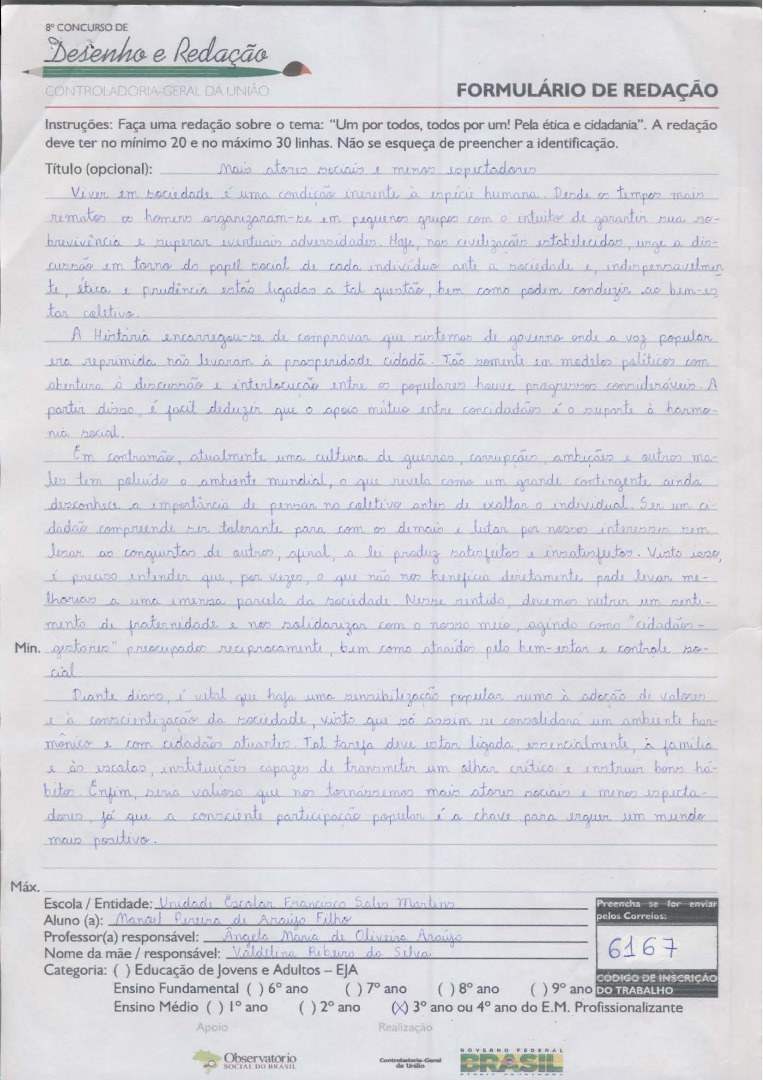 8º CONCURSO DE
Desenho e Redação
CONTROLADORIA-GERAL DA UNIÃO
FORMULÁRIO DE REDAÇÃO
Instruções: Faça uma redação sobre o tema: “Um por todos, todos por um! Pela ética e cidadania”. A redação
deve ter no mínimo 20 e no máximo 30 linhas. Não se esqueça de preencher a identificação.
Título (opcional): Mais atores sociais e menos espectadores
Viver em sociedade é uma condição inerente à espécie humana. Desde os tempos mais
remotos os homens organizaram-se em pequenos grupos com o intuito de garantir sua so-
brevivência e superar eventuais adversidades. Hoje, nas civilizações estabelecidas, urge a dis-
cussão em torno do papel social de cada indivíduo ante a sociedade e, indispensavelmen
te, ética e prudência estão ligadas a tal questão, bem como podem conduzir ao bem-es
tar coletivo.
A História encarregou-se de comprovar que sistemas de governo onde a voz popular
era reprimida não levaram à prosperidade cidadã. Tão somente em modelos políticos com
abertura à discussão e interlocução entre os populares houve progressos consideráveis. A
partir disso, é facil deduzir que o apoio mútuo entre concidadãos é o suporte à harmo-
nia social.
Em contramão, atualmente uma cultura de guerras, corrupções, ambições e outros ma-
les tem poluído o ambiente mundial, o que revela como um grande contingente ainda
desconhece a importância de pensar no coletivo antes de exaltar o individual. Ser um ci-
dadão compreende ser tolerante para com os demais e lutar por nossos interesses sem
lesar as conquistas de outros, afinal, a lei produz satisfeitos e insatisfeitos. Visto isso,
é preciso entender que, por vezes, o que não nos beneficia diretamente pode levar me-
lhorias a uma imensa parcela da sociedade. Nesse sentido, devemos nutrir um senti-
mento de fraternidade e nos solidarizar com o nosso meio, agindo como "cidadãos-
Min. gestores" preocupados reciprocamente, bem como atraídos pelo bem-estar e controle so-
cial.
Diante disso, é vital que haja uma sensibilização popular rumo à adoção de valores
e à conscientização da sociedade, visto que só assim se consolidará um ambiente har-
mônico e com cidadãos atuantes. Tal tarefa deve estar ligada, essencialmente, à família
e às escolas, instituições capazes de transmitir um olhar crítico e instruir bons há-
bitos. Enfim, seria valioso que nos tornássemos mais atores sociais e menos especta-
dores, já que a consciente participação popular é a chave para erguer um mundo
mais positivo.
Máx.
Escola / Entidade: Unidade Escolar Francisco Sales Martins
Aluno (a): Manoel Pereira de Araújo Filho
Professor(a) responsável: Ângela Maria de Oliveira Araújo
Nome da mãe / responsável: Valdelina Ribeiro da Silva
Preencha se for enviar
pelos Correios:
6167
CÓDIGO DE INSCRIÇÃO
DO TRABALHO
Categoria: ( ) Educação de Jovens e Adultos – EJA
Ensino Fundamental ( ) 6º ano ( ) 7º ano ( ) 8º ano ( ) 9º ano
Ensino Médio ( ) 1º ano ( ) 2º ano (X) 3º ano ou 4º ano do E.M. Profissionalizante
Apoio
Realização
Observatório
SOCIAL DO BRASIL
Controladoria-Geral
da União
GOVERNO FEDERAL
BRASIL